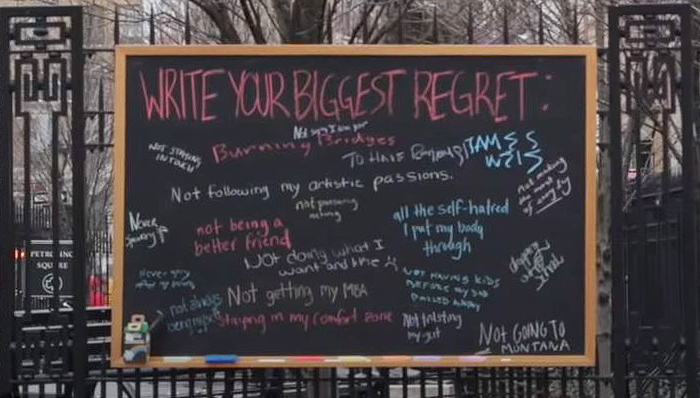 WRITE YOUR BIGGEST REGRET:
NOT STAYING
IN TOUCH
Burning Bridges
TO HAVE
Not making
the most
of
Not following my artistic passions.
not pursuing
acting
Never
Speaking
not being a
better friend
all the self-hatred
I put my body
through
Not doing what I
want and the
NOT HAVING KIDS
BEFORE MY DAD
PASSED AWAY
Not getting my MBA
not always
being myself
Staying in my comfort zone
Not trusting
my gut
Not GOING TO
MONTANA
SQUARE